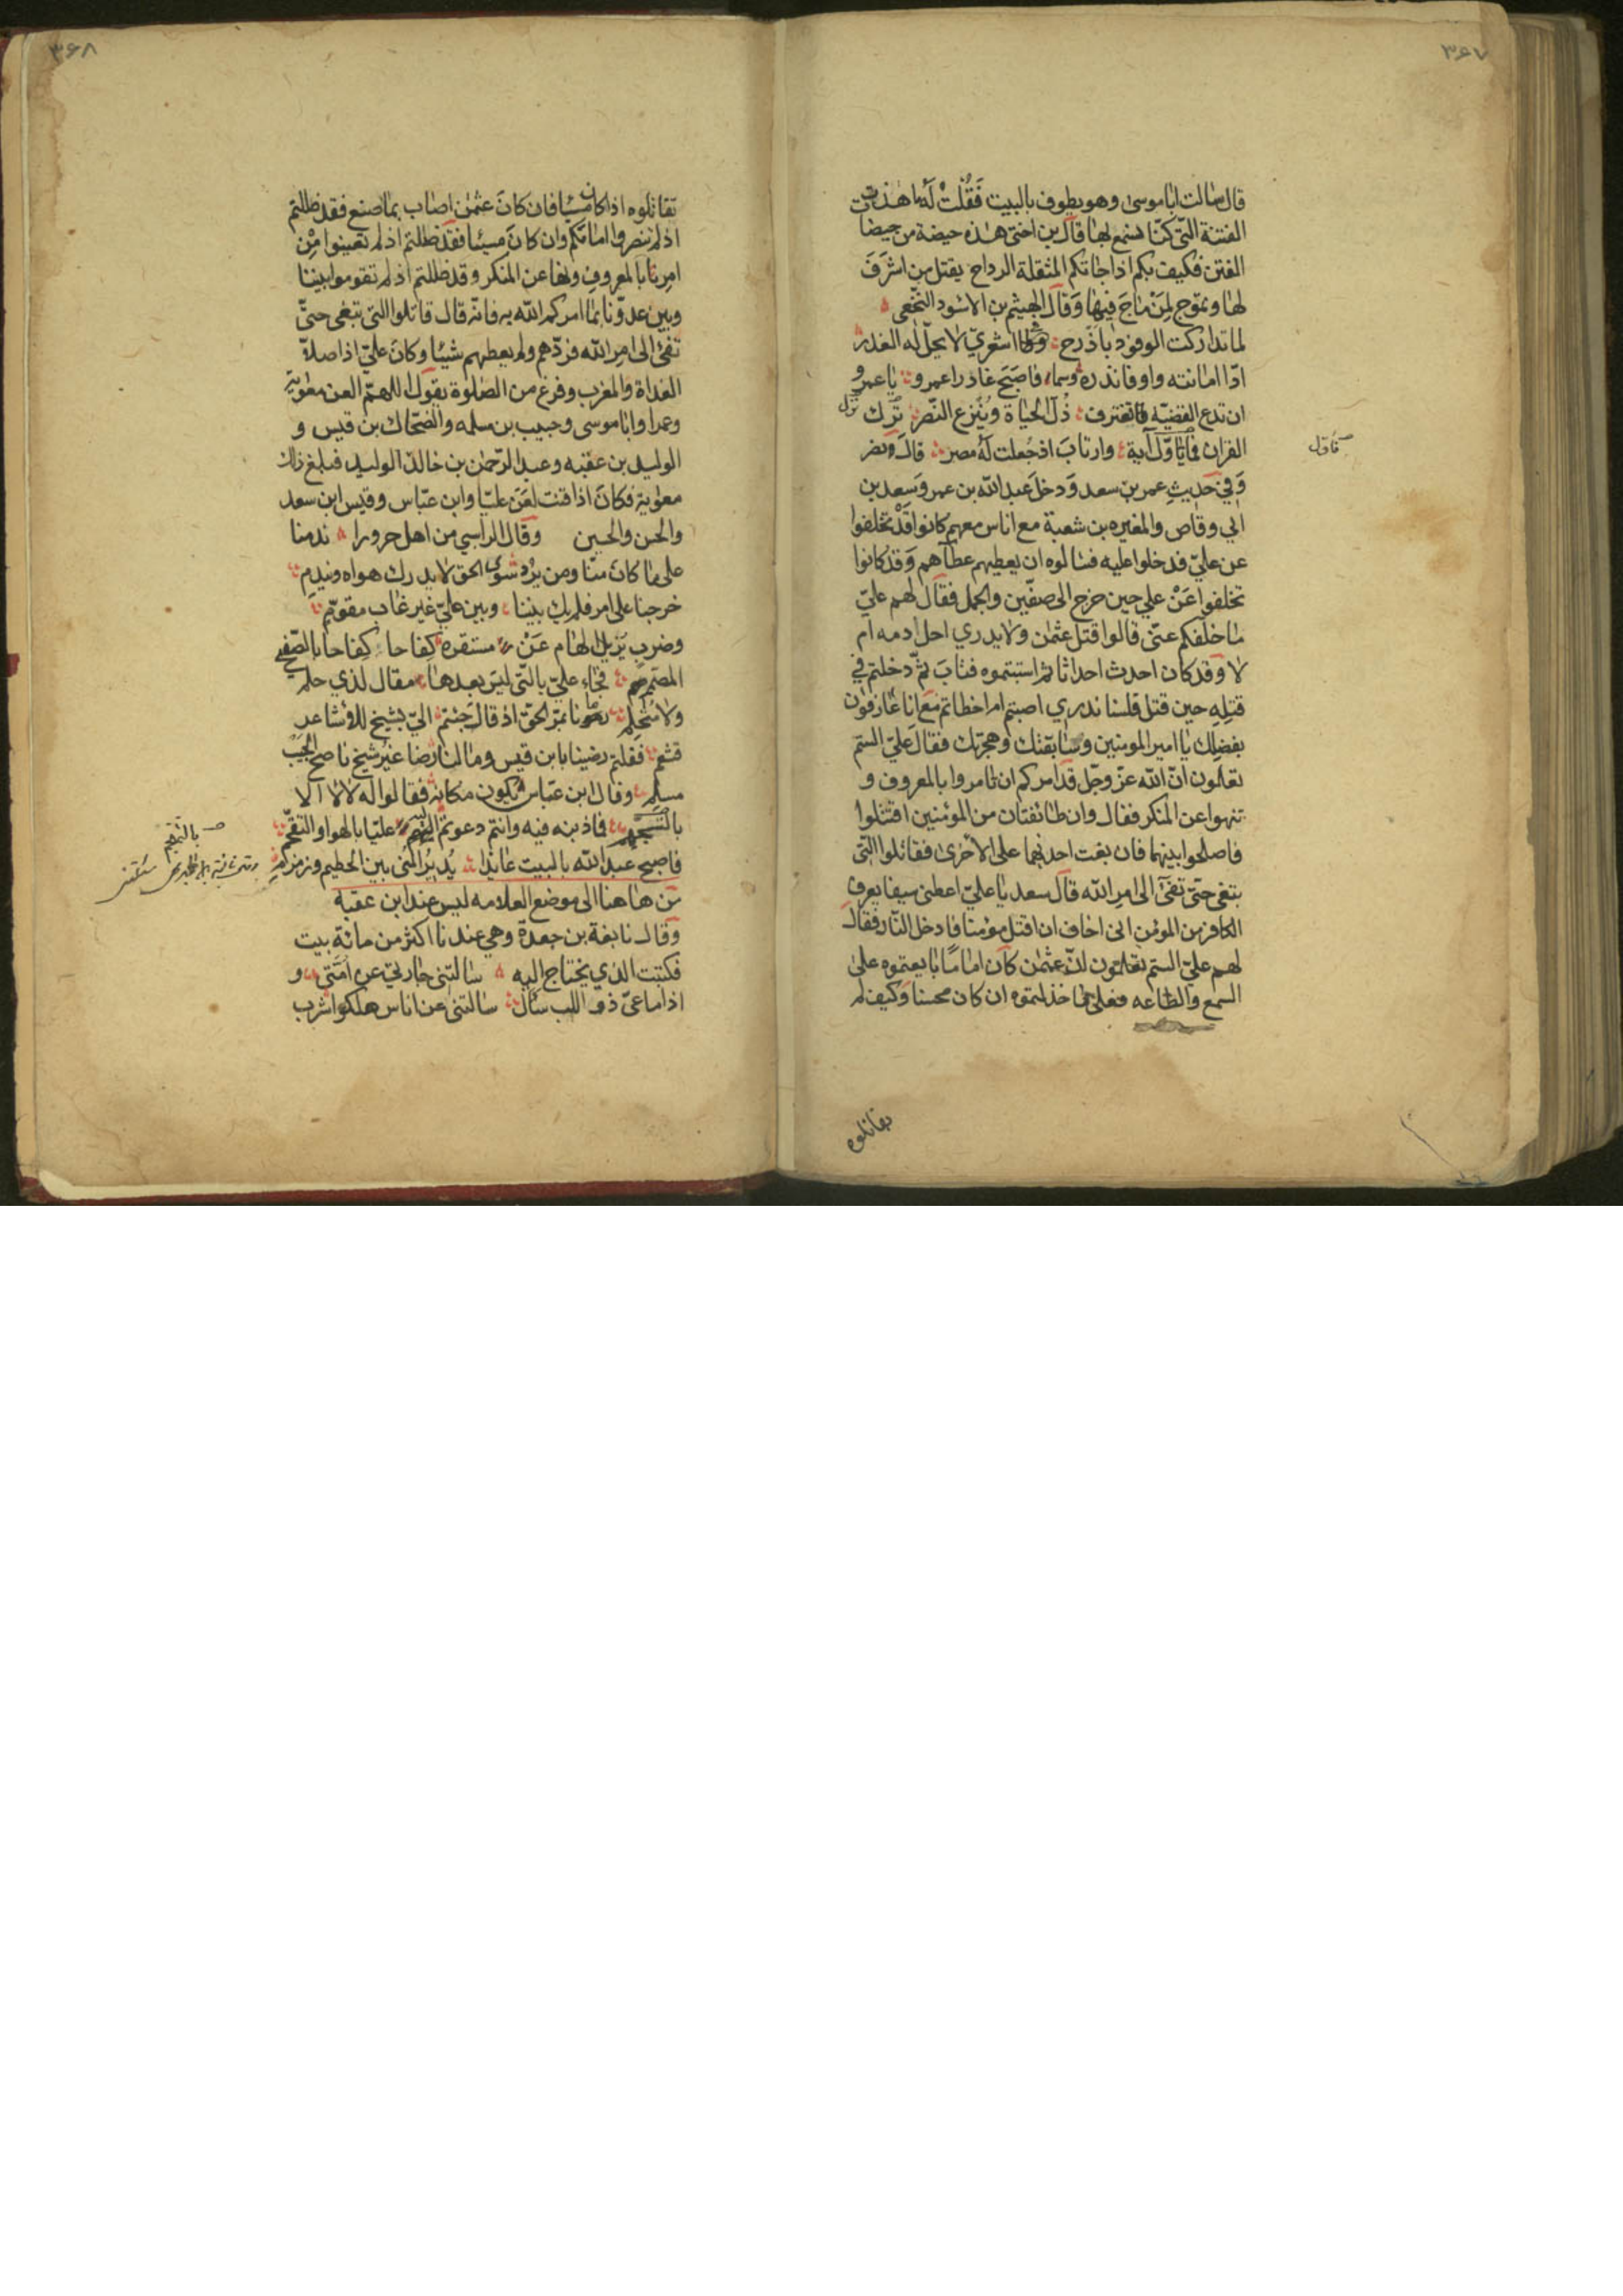 ٣۶٧
قال سالت ابا موسى وهو يطوف بالبيت فقلت له ما هذه
الفتنة التى كنا نسمع لها قال بن اختى هذه حيضة من حيضات
الفتن فكيف بكم اذا جاتكم المثقلة الرداح يقتل من اشرف
لها وتموج لمن ماج فيها وقال الهيثم بن الاسود النخعى
لما تداركت الوفود باذرح اشعري لا يحل له الغدر
ادّا امانته واوفا نذره وسما فاصبح غادرا عمرو يا عمرو
ان تدع القضيه تعترف ذل الحياة وينزع النصر ترك
القران فما تاوّل آية وارتاب اذ جعلت له مصر قال ونصر
تاول
وفي حديث عمر بن سعد ودخل عبد الله بن عمر وسعد بن
ابي وقاص والمغيره بن شعبة مع اناس معهم كانوا قد تخلفوا
عن عليّ فدخلوا عليه فسالوه ان يعطيهم عطآهم وقد كانوا
تخلفوا عن علي حين خرج الى صفّين والجمل فقال لهم عليّ
ما خلّفكم عنّى قالوا قتل عثمن ولا يدري احل دمه ام
لا وقد كان احدث احداثا ثم استبتموه فتاب ثمّ دخلتم في
قتله حين قتل فلسنا ندري اصبتم ام اخطاتم مع انا عارفون
بفضلك يا امير المومنين وسابقتك وهجرتك فقال عليّ الستم
تعلمون انّ الله عزّ وجلّ قد امركم ان تامروا بالمعروف و
تنهوا عن المنكر فقال وان طائفتان من المؤمنين اقتتلوا
فاصلحوا بينهما فان بغت احديهما على الاخرى فقاتلوا التى
تبغى حتّى تفىء الى امر الله قال سعد يا عليّ اعطنى سيفا يعرف
الكافر من المومن انى اخاف ان اقتل مؤمنا فادخل النار فقال
لهم عليّ الستم تعلمون انّ عثمن كان اماما بايعتموه على
السمع والطاعه فعلى ما خذلتموه ان كان محسنا وكيف لم
تقاتلوه
٣۶٨
تقاتلوه اذا كان مسيئا فان كان عثمن اصاب بما صنع فقد ظلمتم
اذ لم تنصروا امامكم وان كان مسيئا فقد ظلمتم اذ لم تعينوا من
امرنا بالمعروف ونها عن المنكر وقد ظلمتم اذ لم تقوموا بيننا
وبين عدوّنا بما امركم الله به فانه قال قاتلوا التى تبغى حتّى
تفئ الى امر الله فردّهم ولم يعطهم شيئا وكان عليّ اذا صلا
الغداة والمغرب وفرغ من الصلوة يقول اللهمّ العن معوية
وعمرا وابا موسى وحبيب بن سلمه والضحاك بن قيس و
الوليد بن عقبه وعبد الرحمن بن خالد الوليد فبلغ ذلك
معوية فكان اذا قنت لعن عليّا وابن عبّاس وقيس ابن سعد
والحسن والحسين وقال الراسبي من اهل حرورا ندمنا
على ما كان منّا ومن يرد سوى الحق لا يدرك هواه ويندم
خرجنا على امر فلم يك بيننا وبين عليّ غير غاب مقوّم
وضرب يزيل الهام عن مستقره كفاحا كفاحا بالصفيح
المصمّم فجاء عليّ بالتى ليس بعدها مقال لذي حلم
ولا متحلم بمرّ الحقّ اذ قال جئتم اليّ بشيخ للاشاعر
قشعم فقلتم رضينا بابن قيس وما لنا رضا غير شيخ ناصح الجيب
مسلم وقال ابن عبّاس يكون مكانه فقالوا له لا لا الا
فاذنبه فيه وانتم دعوتم عليّا بالهوا والتقحّم
بالتهجّم
فاصبح عبد الله بالبيت عائذا يدير المنى بين الحطيم وزمزم
من هاهنا الى موضع العلامه ليس عند ابن عقبة
وقال نابغة بن جعدة وهي عندنا اكثر من مائة بيت
فكتبت الذي يحتاج اليه سالتنى جارتي عن امّتى و
اذا ما عىّ ذو اللب سأل سالتنى عن اناس هلكوا شرب